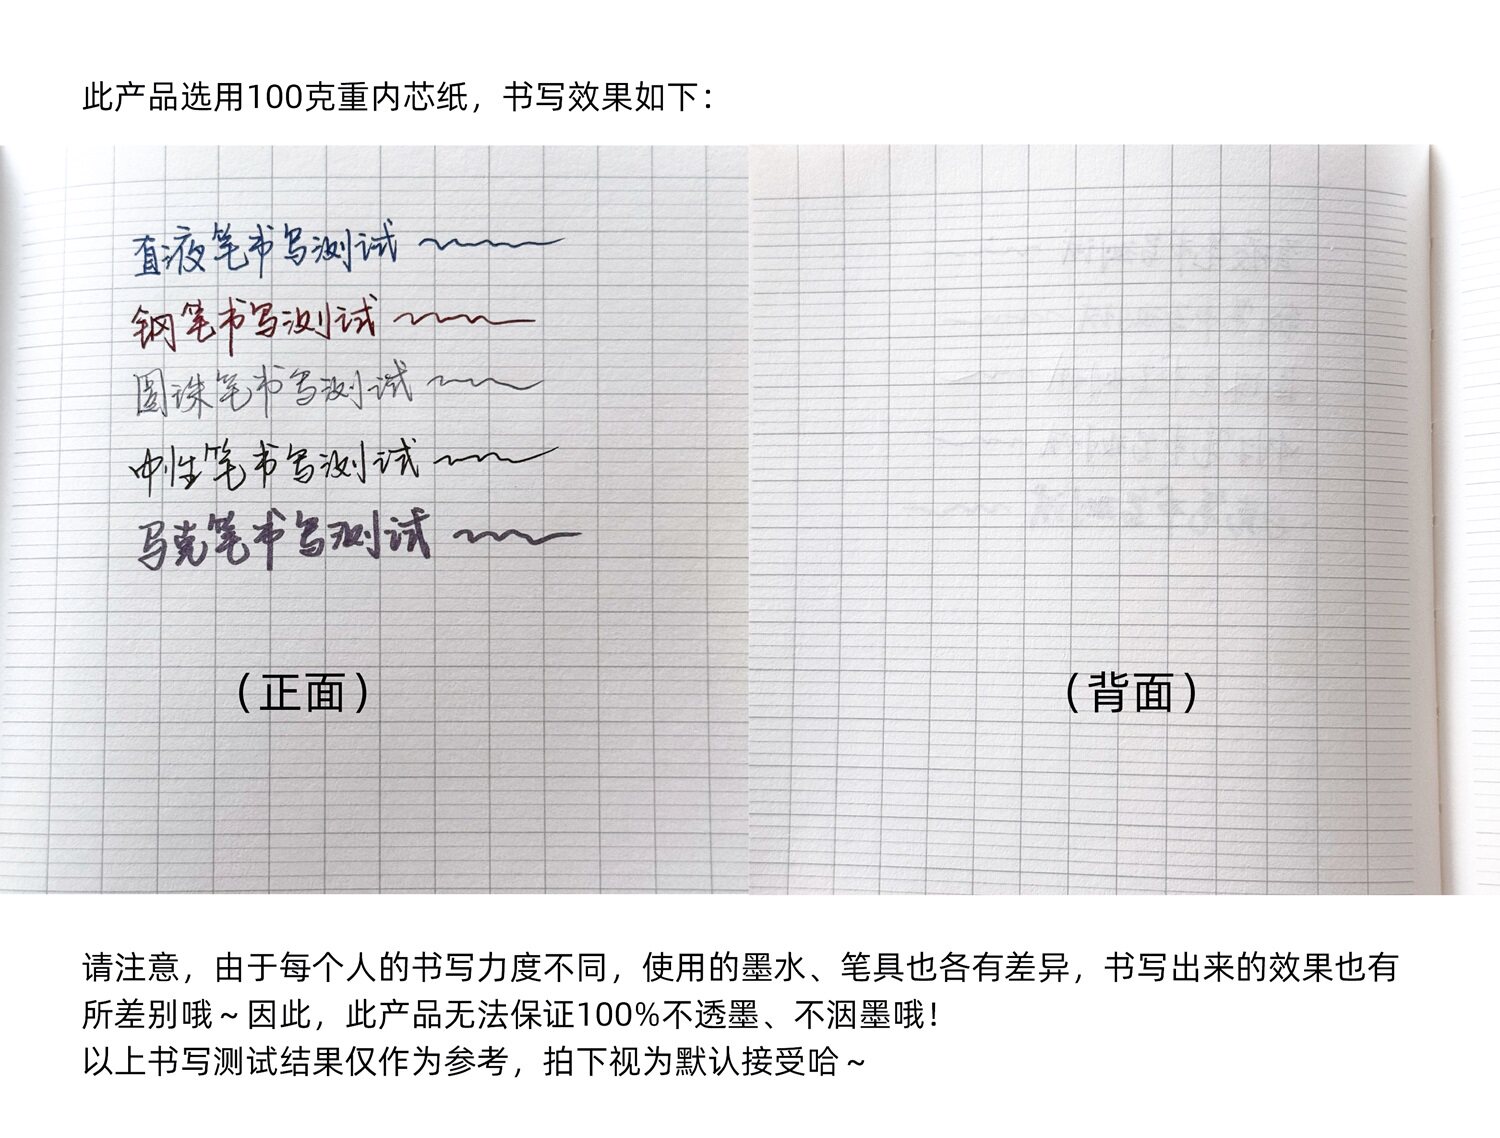 此产品选用100克重内芯纸，书写效果如下：
直液笔书写测试
钢笔书写测试
圆珠笔书写测试
中性笔书写测试
马克笔书写测试
（正面）
（背面）
请注意，由于每个人的书写力度不同，使用的墨水、笔具也各有差异，书写出来的效果也有
所差别哦～因此，此产品无法保证100%不透墨、不洇墨哦！
以上书写测试结果仅作为参考，拍下视为默认接受哈～